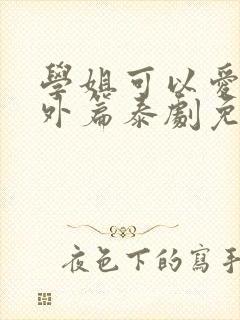 學姐可以愛
外篇泰劇免
夜色下的寫手